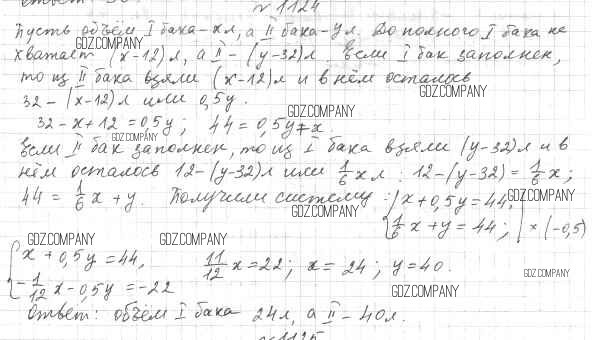 №1124
Пусть объём I бака - x л, а II бака - y л. До полного I бака не
GDZ.COMPANY
хватает (x-12) л, а II - (y-32) л. Если I бак заполнен,
то из II бака взяли (x-12) л и в нём осталось
GDZ.COMPANY
32 - (x-12) л или 0,5y.
GDZ.COMPANY
32 - x + 12 = 0,5y; 44 = 0,5y + x.
GDZ.COMPANY
Если II бак заполнен, то из I бака взяли (y-32) л и в
нём осталось 12 - (y-32) л или 1/6 x л: 12 - (y-32) = 1/6 x;
44 = 1/6 x + y. Получили систему: { x + 0,5y = 44,
GDZ.COMPANY GDZ.COMPANY
1/6 x + y = 44; | × (-0,5)
GDZ.COMPANY GDZ.COMPANY
{ x + 0,5y = 44, 11/12 x = 22; x = 24; y = 40.
GDZ.COMPANY
- 1/12 x - 0,5y = -22
GDZ.COMPANY
Ответ: объём I бака 24 л, а II - 40 л.
№1125